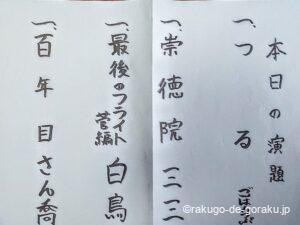 本日の演題
一、つる ごはんつぶ
一、崇徳院 一二三
一、最後のフライト 菅編 白鳥
一、百年目 さん喬
©rakugo-de-goraku.jp